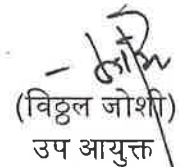 (विठ्ठल जोशी)
उप आयुक्त